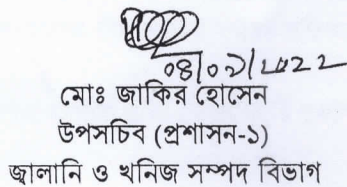 ০৪/০১/২০২২
মোঃ জাকির হোসেন
উপসচিব (প্রশাসন-১)
জ্বালানি ও খনিজ সম্পদ বিভাগ